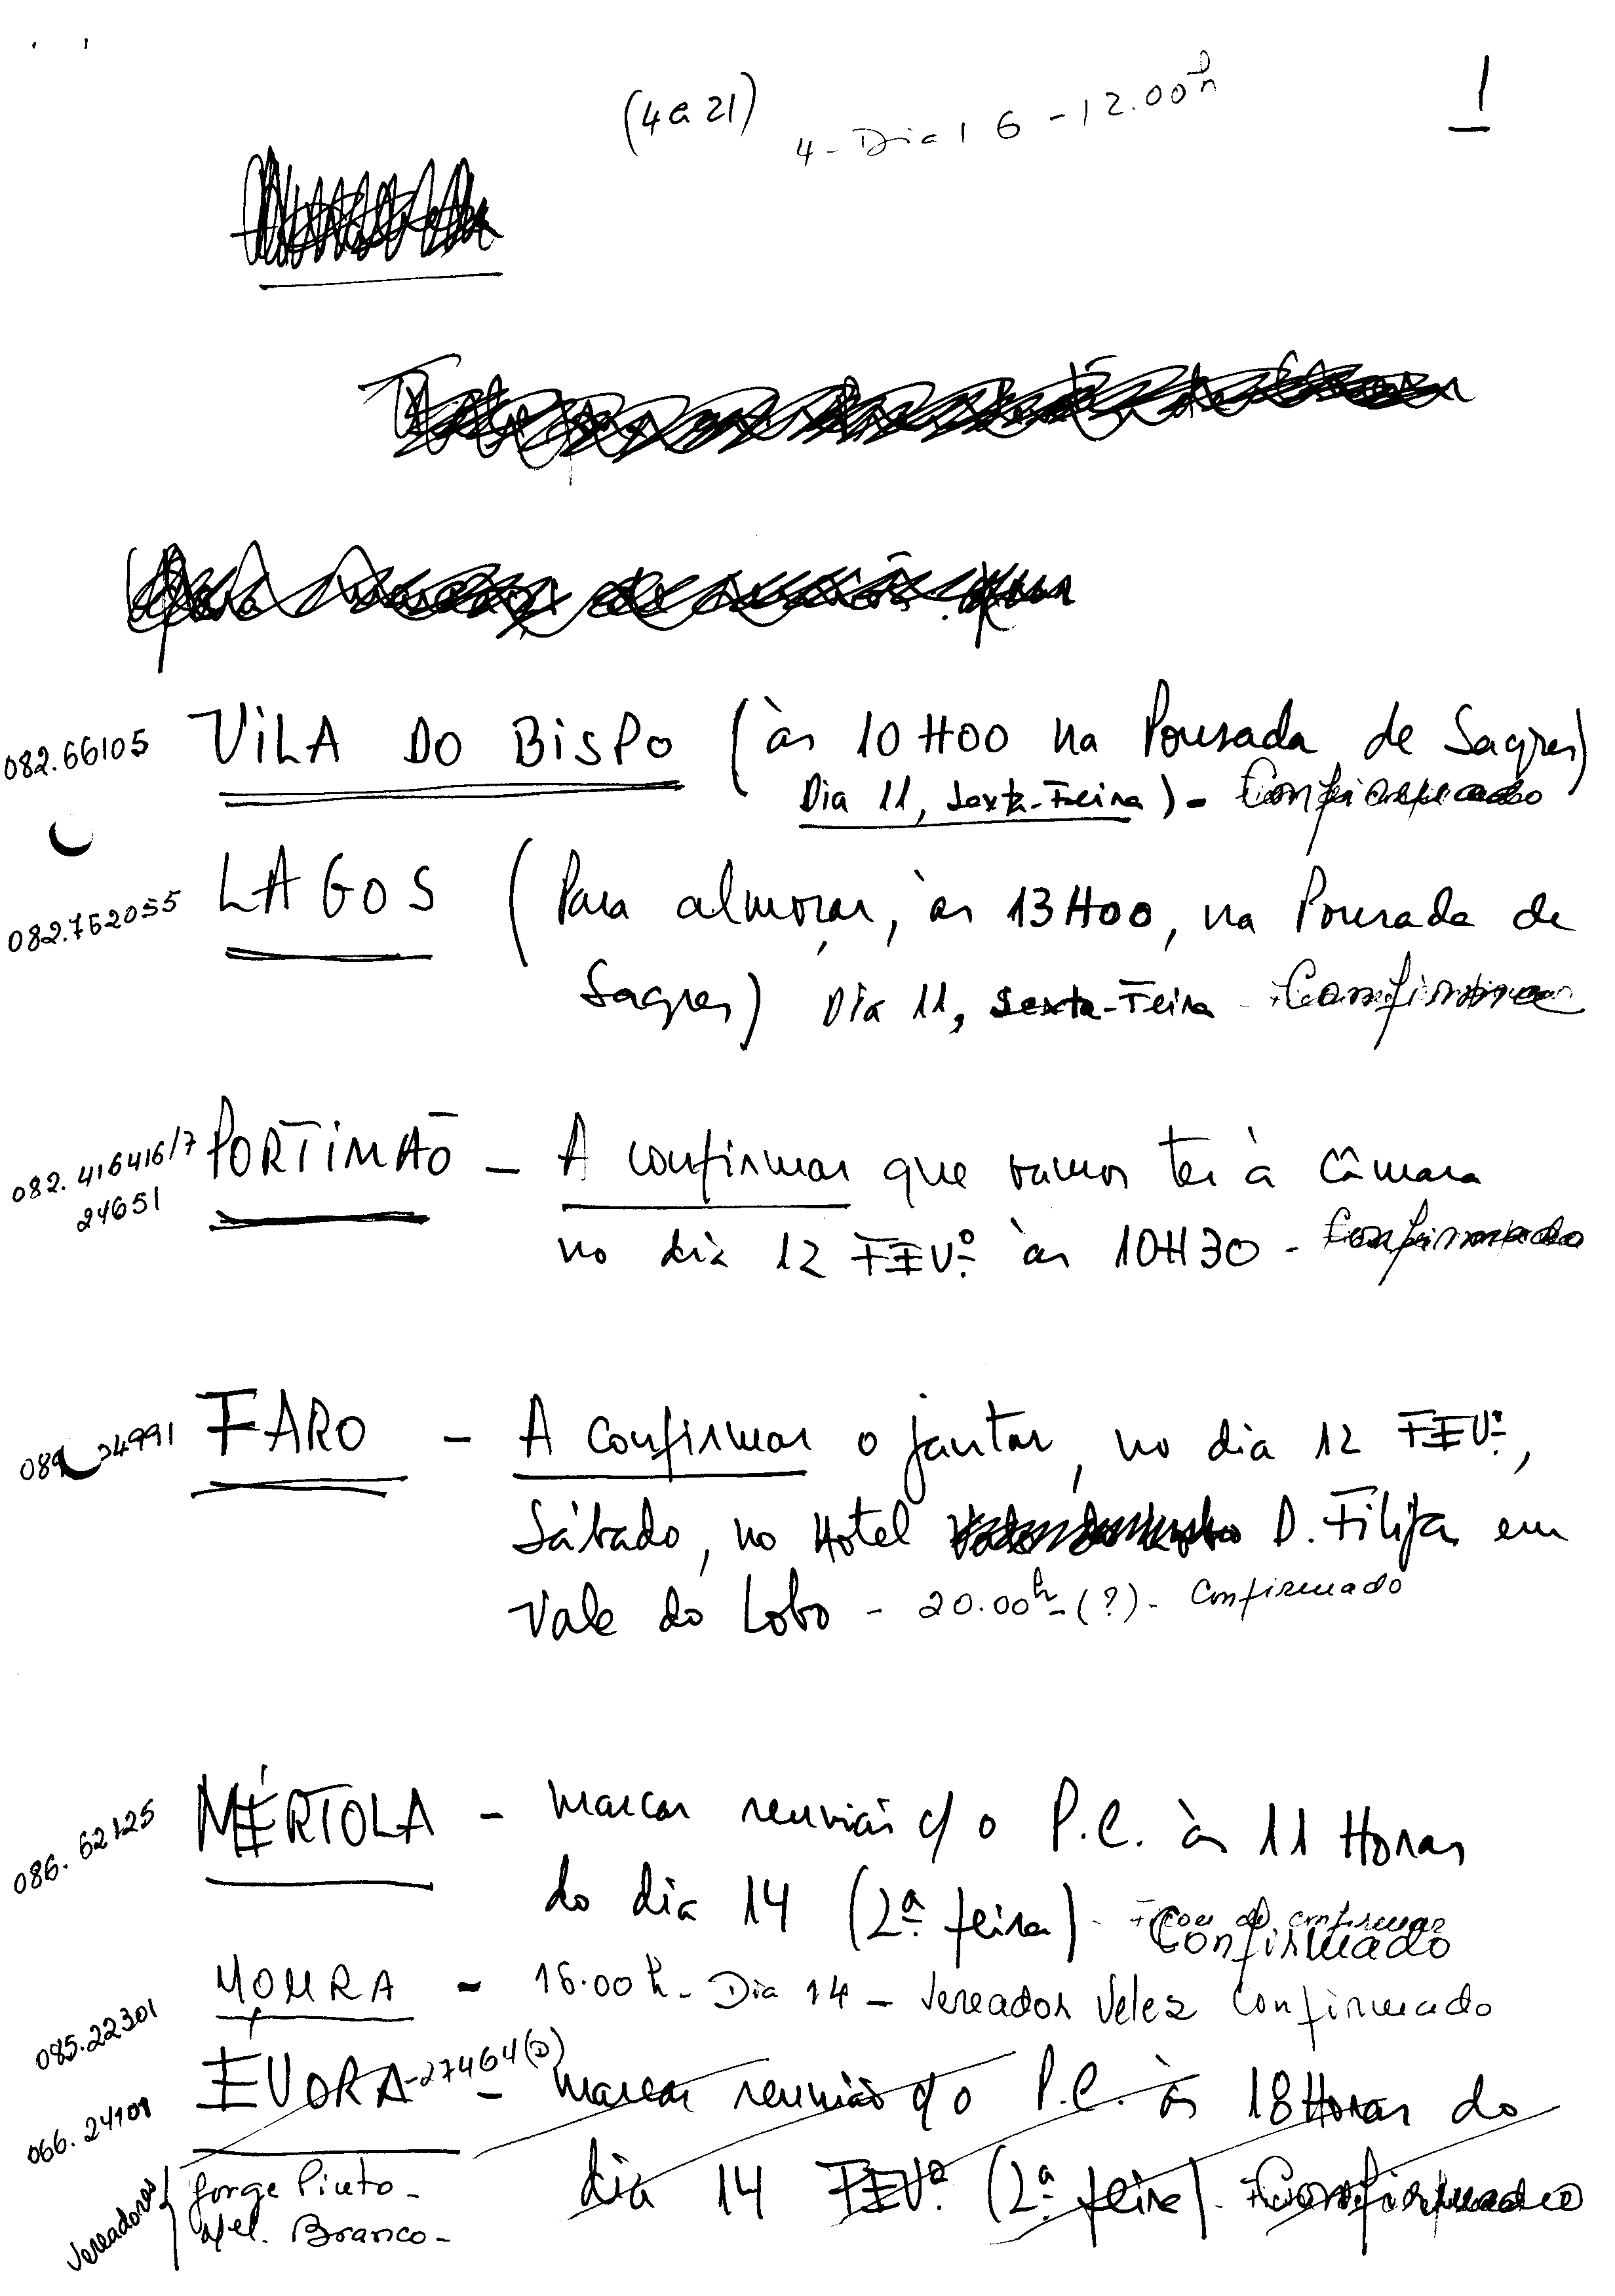 (4 a 21)
4 - Dia 16 - 12.00h
1
082.66105 VILA DO BISPO (às 10H00 na Pousada de Sagres)
Dia 11, Sexta-Feira) - Confirmado
082.762055 LAGOS (Para almoçar, às 13H00, na Pousada de
Sagres) Dia 11, Sexta-Feira -
082. 416416/7 PORTIMÃO - A confirmar que vamos ter à Câmara
24651
no dia 12 FEVº às 10H30 - Confirmado
089 24991 FARO - A confirmar o jantar, no dia 12 FEVº,
Sábado, no Hotel D. Filipa em
Vale do Lobo - 20.00h - (?) - Confirmado
086. 62125 MÉRTOLA - Marcar reunião c/ o P.C. às 11 Horas
do dia 14 (2ª feira) - Ficou de confirmar
Confirmado
085.22301 MOURA - 16.00h - Dia 14 - Vereador Velez Confirmado
066. 24101 EVORA - 27464(D) - Marcar reunião c/ o P.C. às 18 Horas do
dia 14 FEVº (2ª feira) - Confirmado
Vereadores { Jorge Pinto -
Mel. Branco -